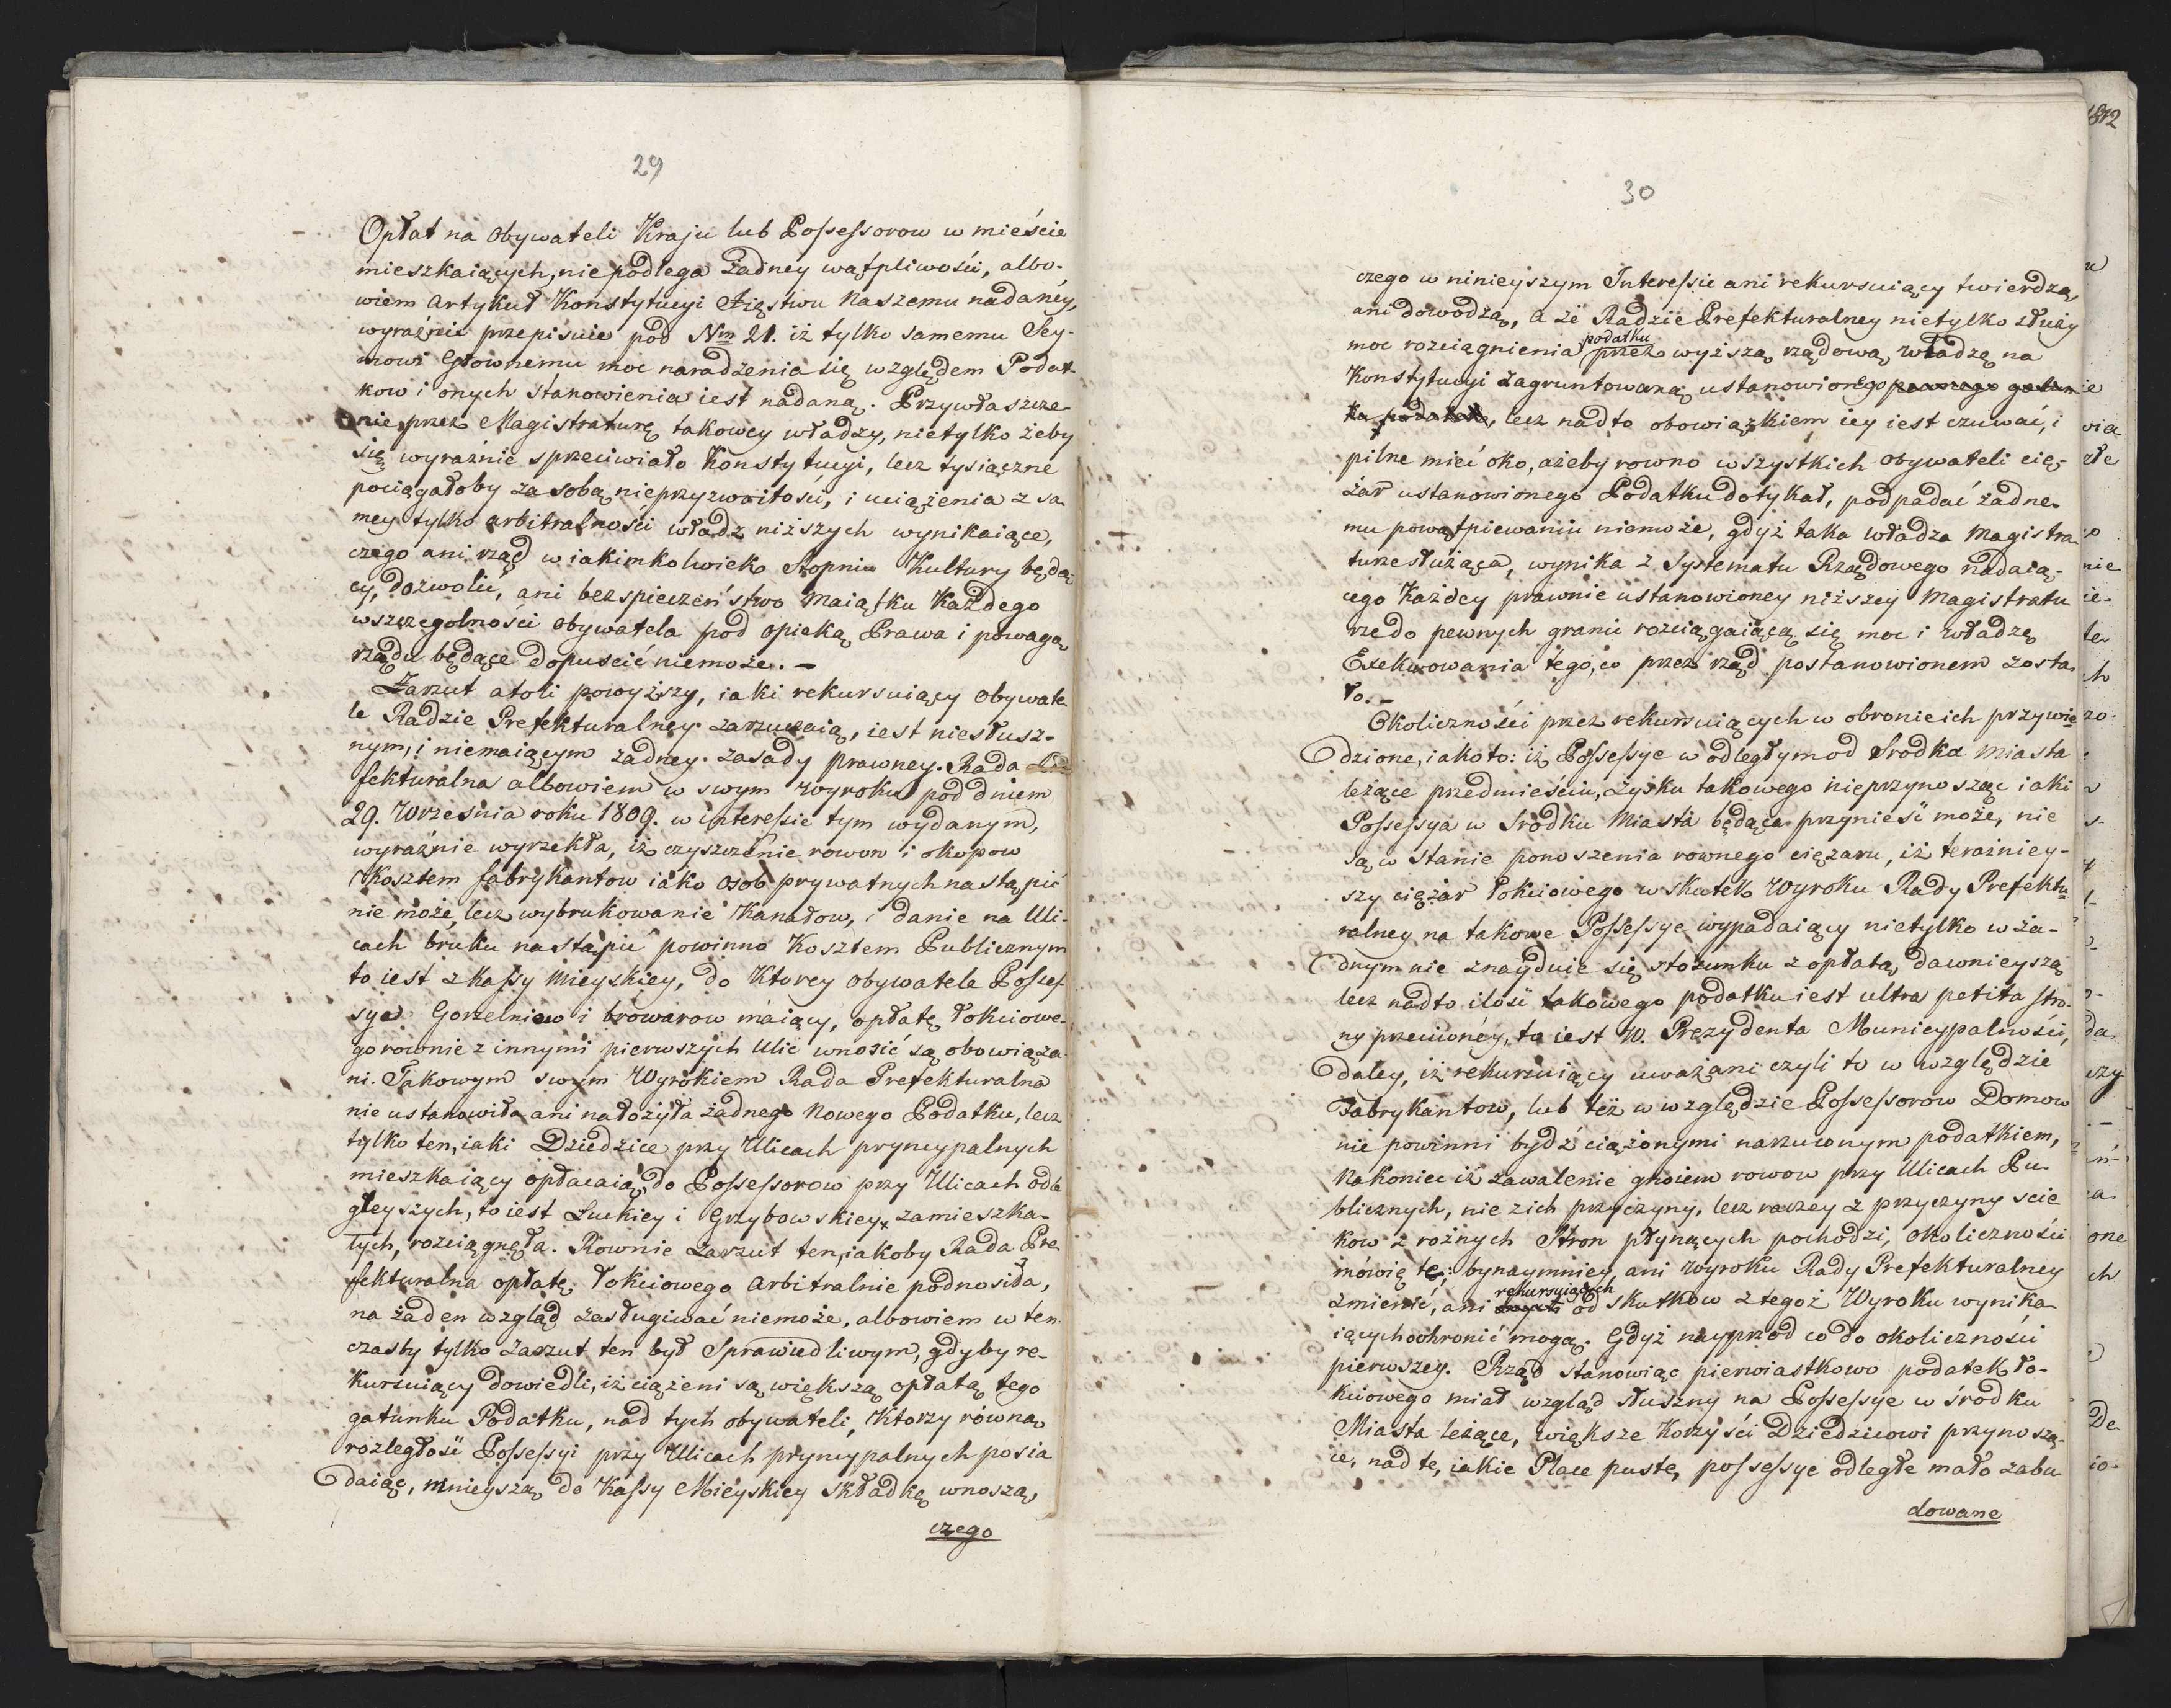 29
Opłat na Obywateli Kraju lub Possessorow w mieście
mieszkaiących, nie podlega żadney wątpliwości, albo-
wiem Artykuł Konstytucyi Xięstwu Naszemu nadaney,
wyraźnie przepisuie pod Nm 21. iż tylko samemu Sey-
mowi Głownemu moc naradzenia się względem Podat-
kow i onych stanowienia iest nadaną. Przywłaszcze-
nie przez Magistraturę takowey władzy, nietylko żeby
się wyraźnie sprzeciwiało Konstytucyi, lecz tysiączne
pociągałoby za sobą nieprzyzwoitości, i uciążenia z sa-
mey tylko arbitralności władz niższych wynikaiące,
czego ani rząd w iakimkolwiek Stopniu Kultury będą-
cy, dozwolić, ani bezspieczeństwo Maiątku Każdego
wszczegolności Obywatela pod opieką Prawa i powagą
rządu będące dopuscić niemoże. –
Zarzut atoli powyższy, iaki rekursuiący Obywate-
le Radzie Prefekturalney zarzucaią, iest niesłusz-
nym, i niemaiącym żadney zasady prawney. Rada Pre-
fekturalna albowiem w swym wyroku pod dniem
29. Września roku 1809. w interessie tym wydanym,
wyraźnie wyrzekła, iż czyszczenie rowow i okopow
Kosztem fabrykantow iako osob prywatnych nastąpić
nie może, lecz wybrukowanie Kanałow, i danie na Uli-
cach bruku nastąpić powinno Kosztem Publicznym
to iest z kassy Mieyskiey, do Ktorey Obywatele Posses-
sye Gorzelniow i browarow maiący, opłatę łokciowe-
go rownie z innymi pierwszych Ulic wnosić są obowiąza-
ni. Takowym swym Wyrokiem Rada Prefekturalna
nie ustanowiła ani nałożyła żadnego Nowego Podatku, lecz
tylko ten, iaki Dziedzice przy Ulicach pryncypalnych
mieszkaiący opłacaią, do Possessorow przy Ulicach odle
gleyszych, to iest Luckiey i Grzybowskiey zamieszka-
łych, rozciągnęła. Rownie zarzut ten, iakoby Rada Pre
fekturalna opłatę łokciowego arbitralnie podnosiła,
na żaden wzgląd zasługiwać niemoże, albowiem w ten-
czasby tylko zarzut ten był Sprawiedliwym, gdyby re-
kursuiący dowiedli, iż ciążeni są większą opłatą tego
gatunku Podatku, nad tych obywateli, Ktorzy rowną
rozległość Possessyi przy Ulicach pryncypalnych posia
daiąc, mnieyszą do Kassy Mieyskiey składkę wnoszą,
czego
30
czego w ninieyszym Interessie ani rekursuiący twierdzą,
ani dowodzą, a że Radzie Prefekturalney nietylko służy
podatku
moc rozciągnienia przez wyższą rządową władzę na
Konstytucyi zagruntowaną ustanowionego pewnego gatun-
ku podatku, lecz nadto obowiązkiem iey iest czuwać, i
pilne mieć oko, ażeby rowno wszystkich obywateli cię-
żar ustanowionego Podatku dotykał, podpadać żadne-
mu powątpiewaniu niemoże, gdyż taka władza Magistra-
turze służąca, wynika z Systematu Rządowego nadaią-
cego Każdey prawnie ustanowioney niższey Magistratu
rze do pewnych granic rozciągaiącą się moc i władzę
Exekwowania tego, co przez rząd postanowionem zosta-
ło. –
Okoliczności przez rekursuiących w obronie ich przywie
dzione, iako to: iż Possessye w odległym od Srodka Miasta
leżące przedmieściu, zysku takowego nieprzynosząc iaki
Possessya w Srodku Miasta będąca przynieść może, nie
są w stanie ponoszenia rownego ciężaru, iż teraźniey-
szy ciężar łokciowego w skutek Wyroku Rady Prefektu
ralney na takowe Possessye wypadaiący nietylko w ża-
dnym nie znayduie się stosunku z opłatą dawnieyszą
lecz nadto ilość takowego podatku iest ultra petita stro-
ny przeciwney, to iest W. Prezydenta Municypalności,
daley, iż rekursuiący uważani czyli to w względzie
Fabrykantow, lub też w względzie Possessorow Domow
nie powinni bydź ciążonymi narzuconym podatkiem,
Nakoniec iż zawalenie gnoiem rowow przy Ulicach Pu
blicznych, nie z ich przyczyny, lecz raczey z przyczyny scie
kow z rożnych Stron płynących pochodzi, okoliczności
mowię te; bynaymniey ani Wyroku Rady Prefekturalney
rekursuiących
zmienić, ani od skutkow z tegoż Wyroku wynika-
iących ochronić mogą. Gdyż nayprzod co do okoliczności
pierwszey. Rząd stanowiąc pierwiastkowo podatek ło-
kciowego miał wzgląd słuszny na Possessye w środku
Miasta leżące, większe Korzyści Dziedzicowi przynoszą-
ce, nad te, iakie Place puste, possessye odległe mało zabu
dowane
1812